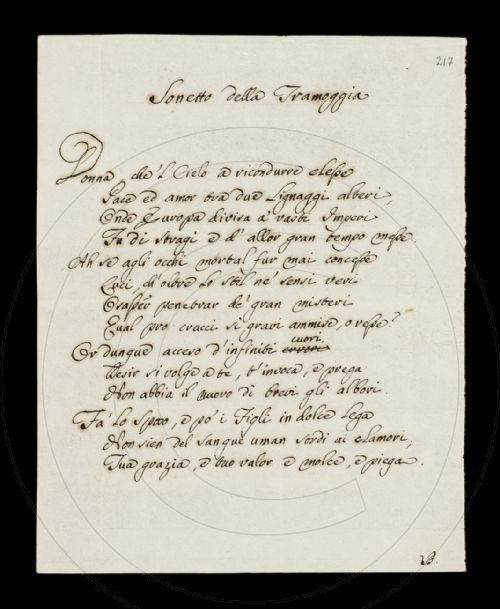 217
Sonetto della Tramoggia
Donna, che 'l Cielo a ricondurre elesse
Pace ed amor tra due Lignaggi alteri,
Onde Europa divisa a' vasti Imperi
Fu di stragi e d' allor gran tempo messe.
Ah se agli occhi mortal fur mai concesse
Luci, di' oltre lo stil ne' sensi veri
penetrar de' gran misteri
Qual pro crucci si gravi ammise, o resse?
cuori
Or dunque acceso d'infiniti errori
Desir si volge a te, t' invoca, e prega
Non abbia il nuovo dì brevi gli albori.
Fa' lo Sposo, e po' i Figli in dolce Lega
Non sien del sangue uman sordi ai clamori;
Tua grazia, e tuo valor e molce, e piega.